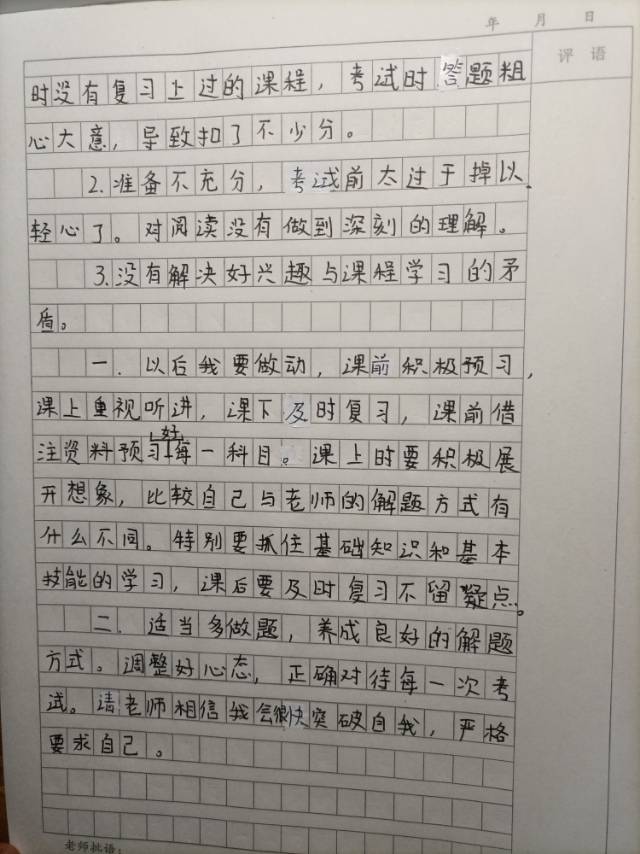 年 月 日
评 语
时没有复习上过的课程，考试时答题粗
心大意，导致扣了不少分。
2.准备不充分，考试前太过于掉以
轻心了。对阅读没有做到深刻的理解。
3.没有解决好兴趣与课程学习的矛
盾。
一.以后我要做动，课前积极预习，
课上重视听讲，课下及时复习，课前借
注资料预习好每一科目。课上时要积极展
开想象，比较自己与老师的解题方式有
什么不同。特别要抓住基础知识和基本
技能的学习，课后要及时复习不留疑点。
二.适当多做题，养成良好的解题
方式。调整好心态，正确对待每一次考
试。请老师相信我会很快突破自我，严格
要求自己。
老师批语：